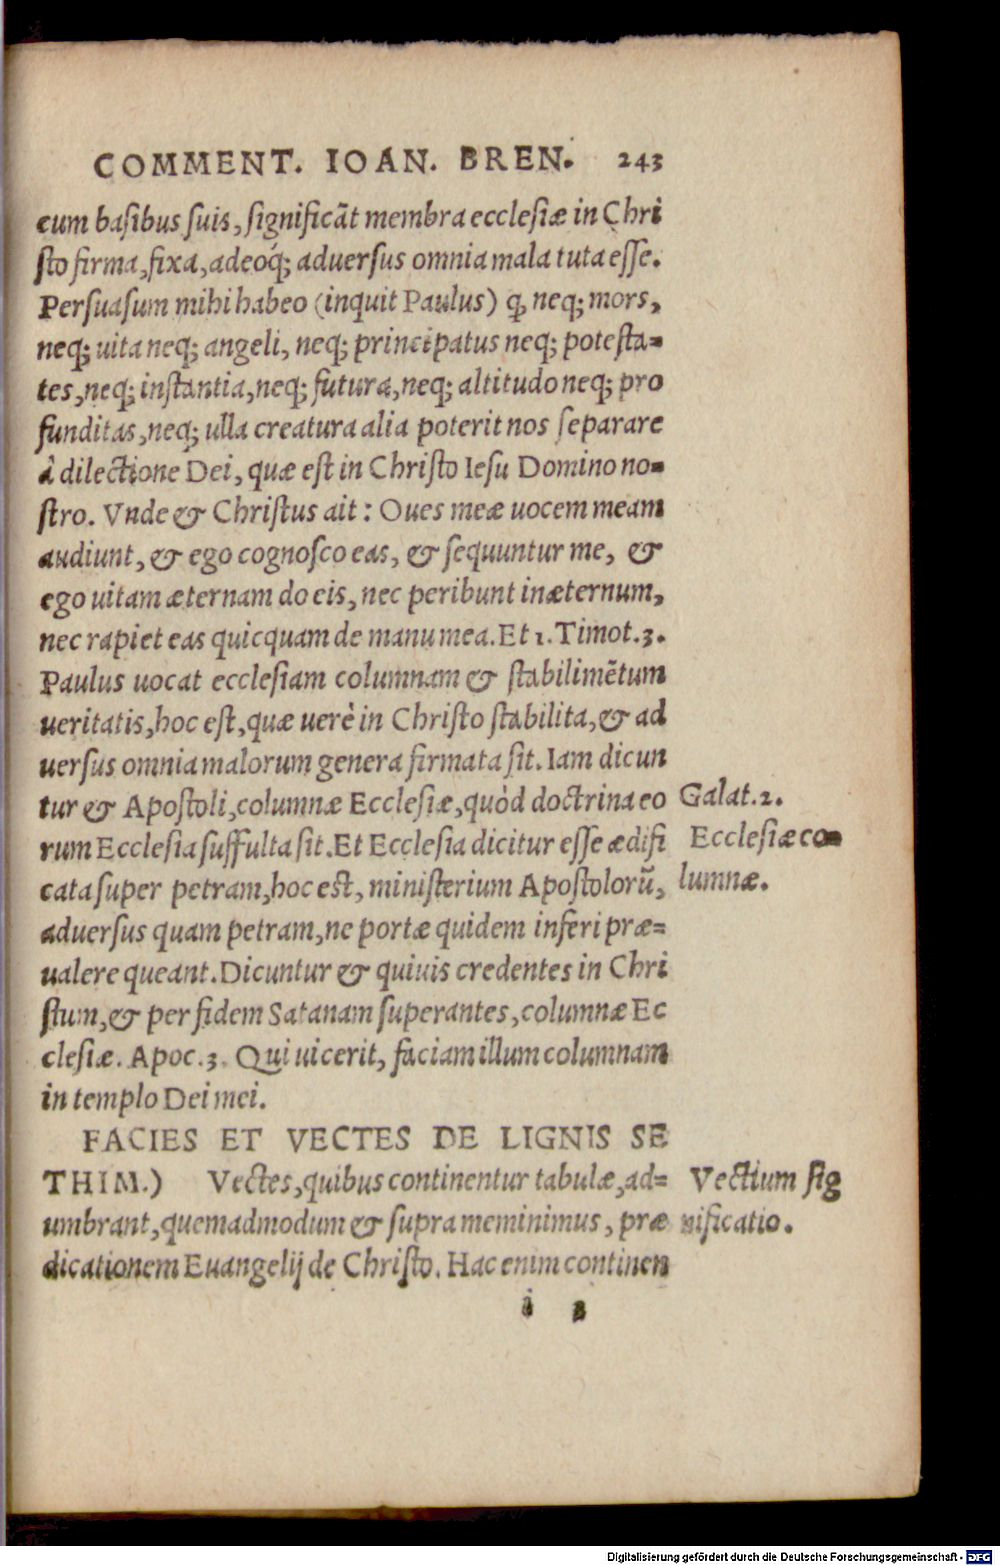 COMMENT. IOAN. BREN. 243
cum basibus suis, significāt membra ecclesiæ in Chri
sto firma, fixa, adeoq́; aduersus omnia mala tuta esse.
Persuasum mihi habeo (inquit Paulus) ꝙ neq; mors,
neq; uita neq; angeli, neq; principatus neq; potesta-
tes, neq; instantia, neq; futura, neq; altitudo neq; pro
funditas, neq; ulla creatura alia poterit nos separare
à dilectione Dei, quæ est in Christo Iesu Domino no-
stro. Vnde & Christus ait: Oues meæ uocem meam
audiunt, & ego cognosco eas, & sequuntur me, &
ego uitam æternam do eis, nec peribunt in æternum,
nec rapiet eas quicquam de manu mea. Et 1. Timot. 3.
Paulus uocat ecclesiam columnam & stabilimētum
ueritatis, hoc est, quæ uerè in Christo stabilita, & ad
uersus omnia malorum genera firmata sit. Iam dicun
tur & Apostoli, columnæ Ecclesiæ, quòd doctrina eo
rum Ecclesia suffulta sit. Et Ecclesia dicitur esse ædifi
cata super petram, hoc est, ministerium Apostolorū,
aduersus quam petram, ne portæ quidem inferi præ-
ualere queant. Dicuntur & quiuis credentes in Chri
stum, & per fidem Satanam superantes, columnæ Ec
clesiæ. Apoc. 3. Qui uicerit, faciam illum columnam
in templo Dei mei.
FACIES ET VECTES DE LIGNIS SE
THIM.) Vectes, quibus continentur tabulæ, ad-
umbrant, quemadmodum & supra meminimus, præ
dicationem Euangelij de Christo. Hac enim continen
Galat. 2.
Ecclesiæ co-
lumnæ.
Vectium sig
nificatio.
i 2
Digitalisierung gefördert durch die Deutsche Forschungsgemeinschaft - DFG